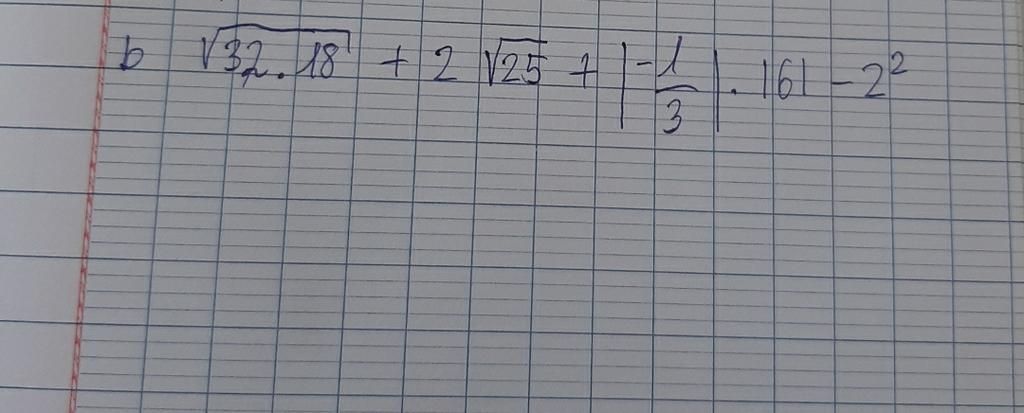 b √32.18 + 2 √25 + |-1/3| . |6| - 2²